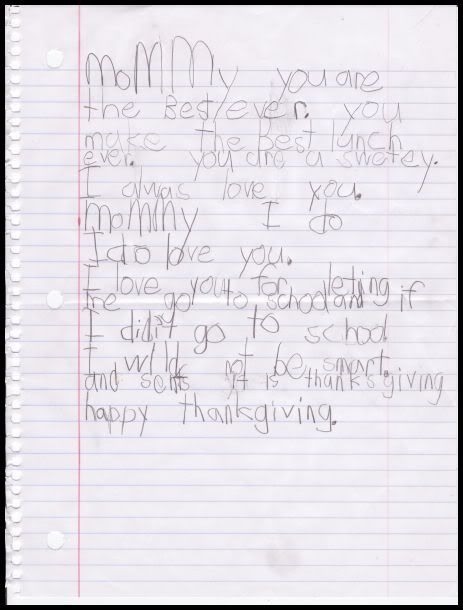 MoMMMy you are
the Best ever. you
make the Best lunch
ever. you are a swetey.
I alwas love you.
MoMMMy I do
I do love you.
I love you for leting
me go to school and if
I didn't go to school
I wilde not be smart.
and sents it is thanksgiving
happy thankgiving.